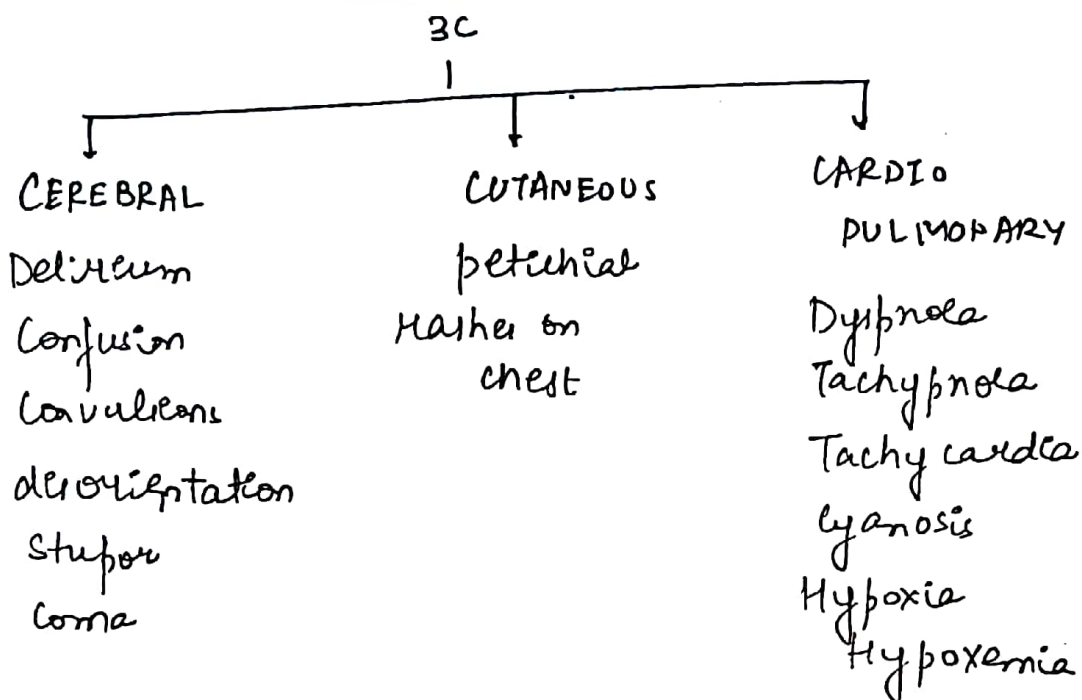 3C
CEREBRAL
Delirium
Confusion
Convulsions
disorientation
Stupor
Coma
CUTANEOUS
petichial
rashes on
chest
CARDIO
PULMONARY
Dyspnoea
Tachypnoea
Tachy cardia
Cyanosis
Hypoxia
Hypoxemia